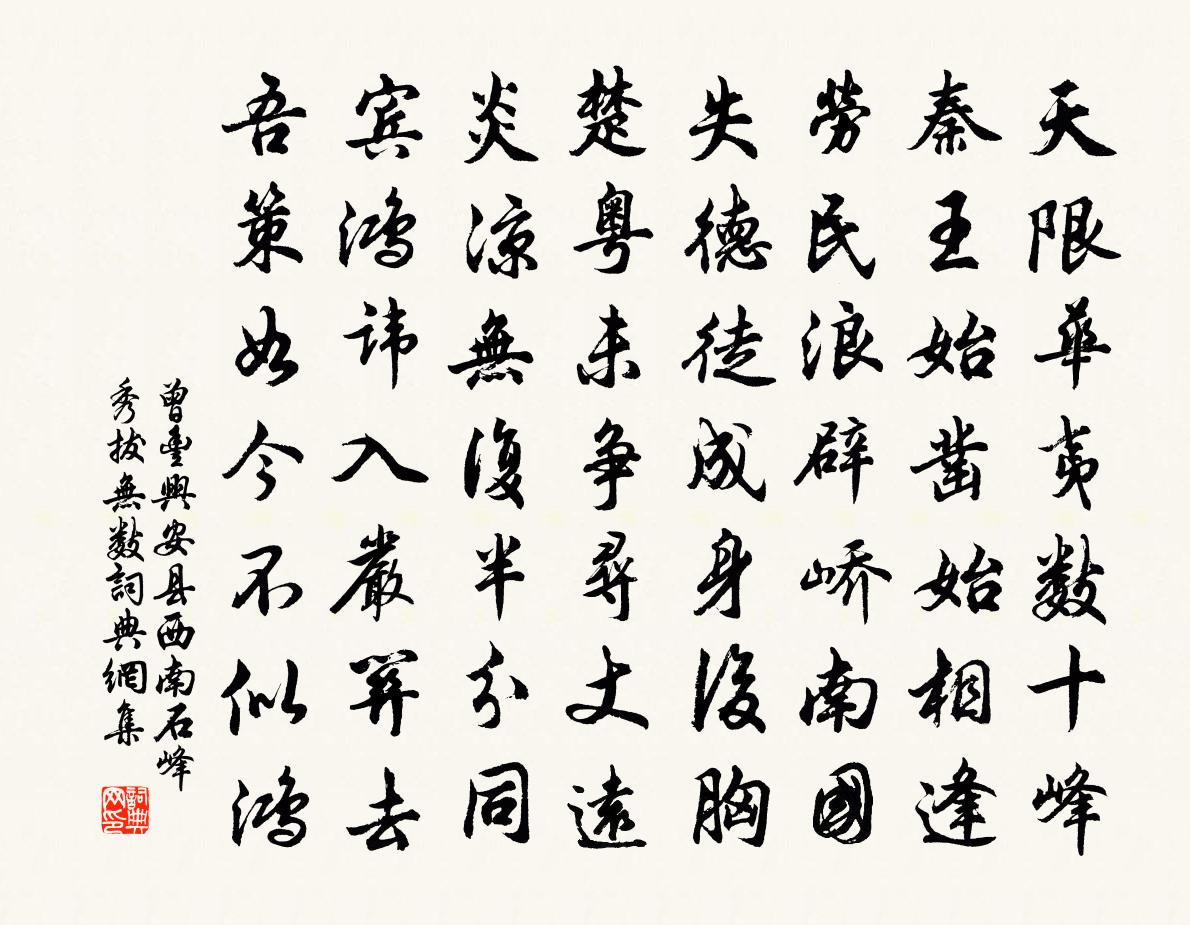 天限華夷數十峰
秦王始凿始相逢
勞民浪辟峤南國
失德徒成身後胸
楚粤未争尋丈遠
炎凉無復半分同
宾鸿讳入嚴關去
吾策如今不似鸿
曾豐興安县西南石峰
秀拔無數詞典網集
詞典网印